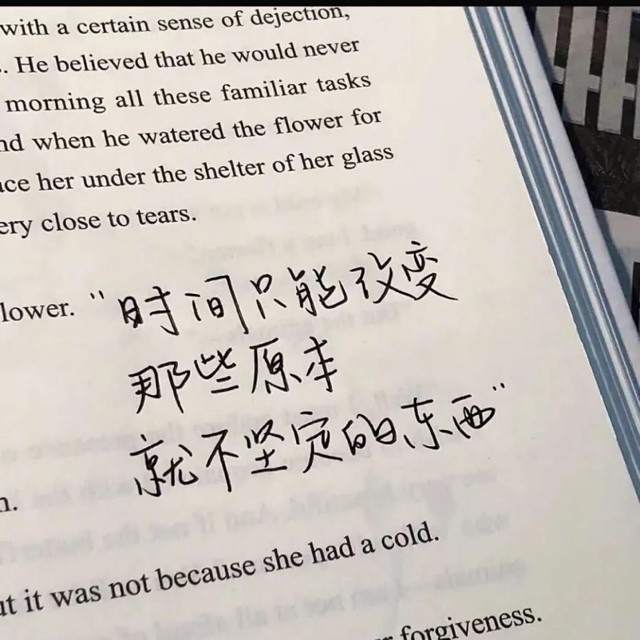 with a certain sense of dejection,
. He believed that he would never
morning all these familiar tasks
nd when he watered the flower for
ace her under the shelter of her glass
ery close to tears.
lower. "时间只能改变
那些原本
就不坚定的东西"
n.
ut it was not because she had a cold.
forgiveness.